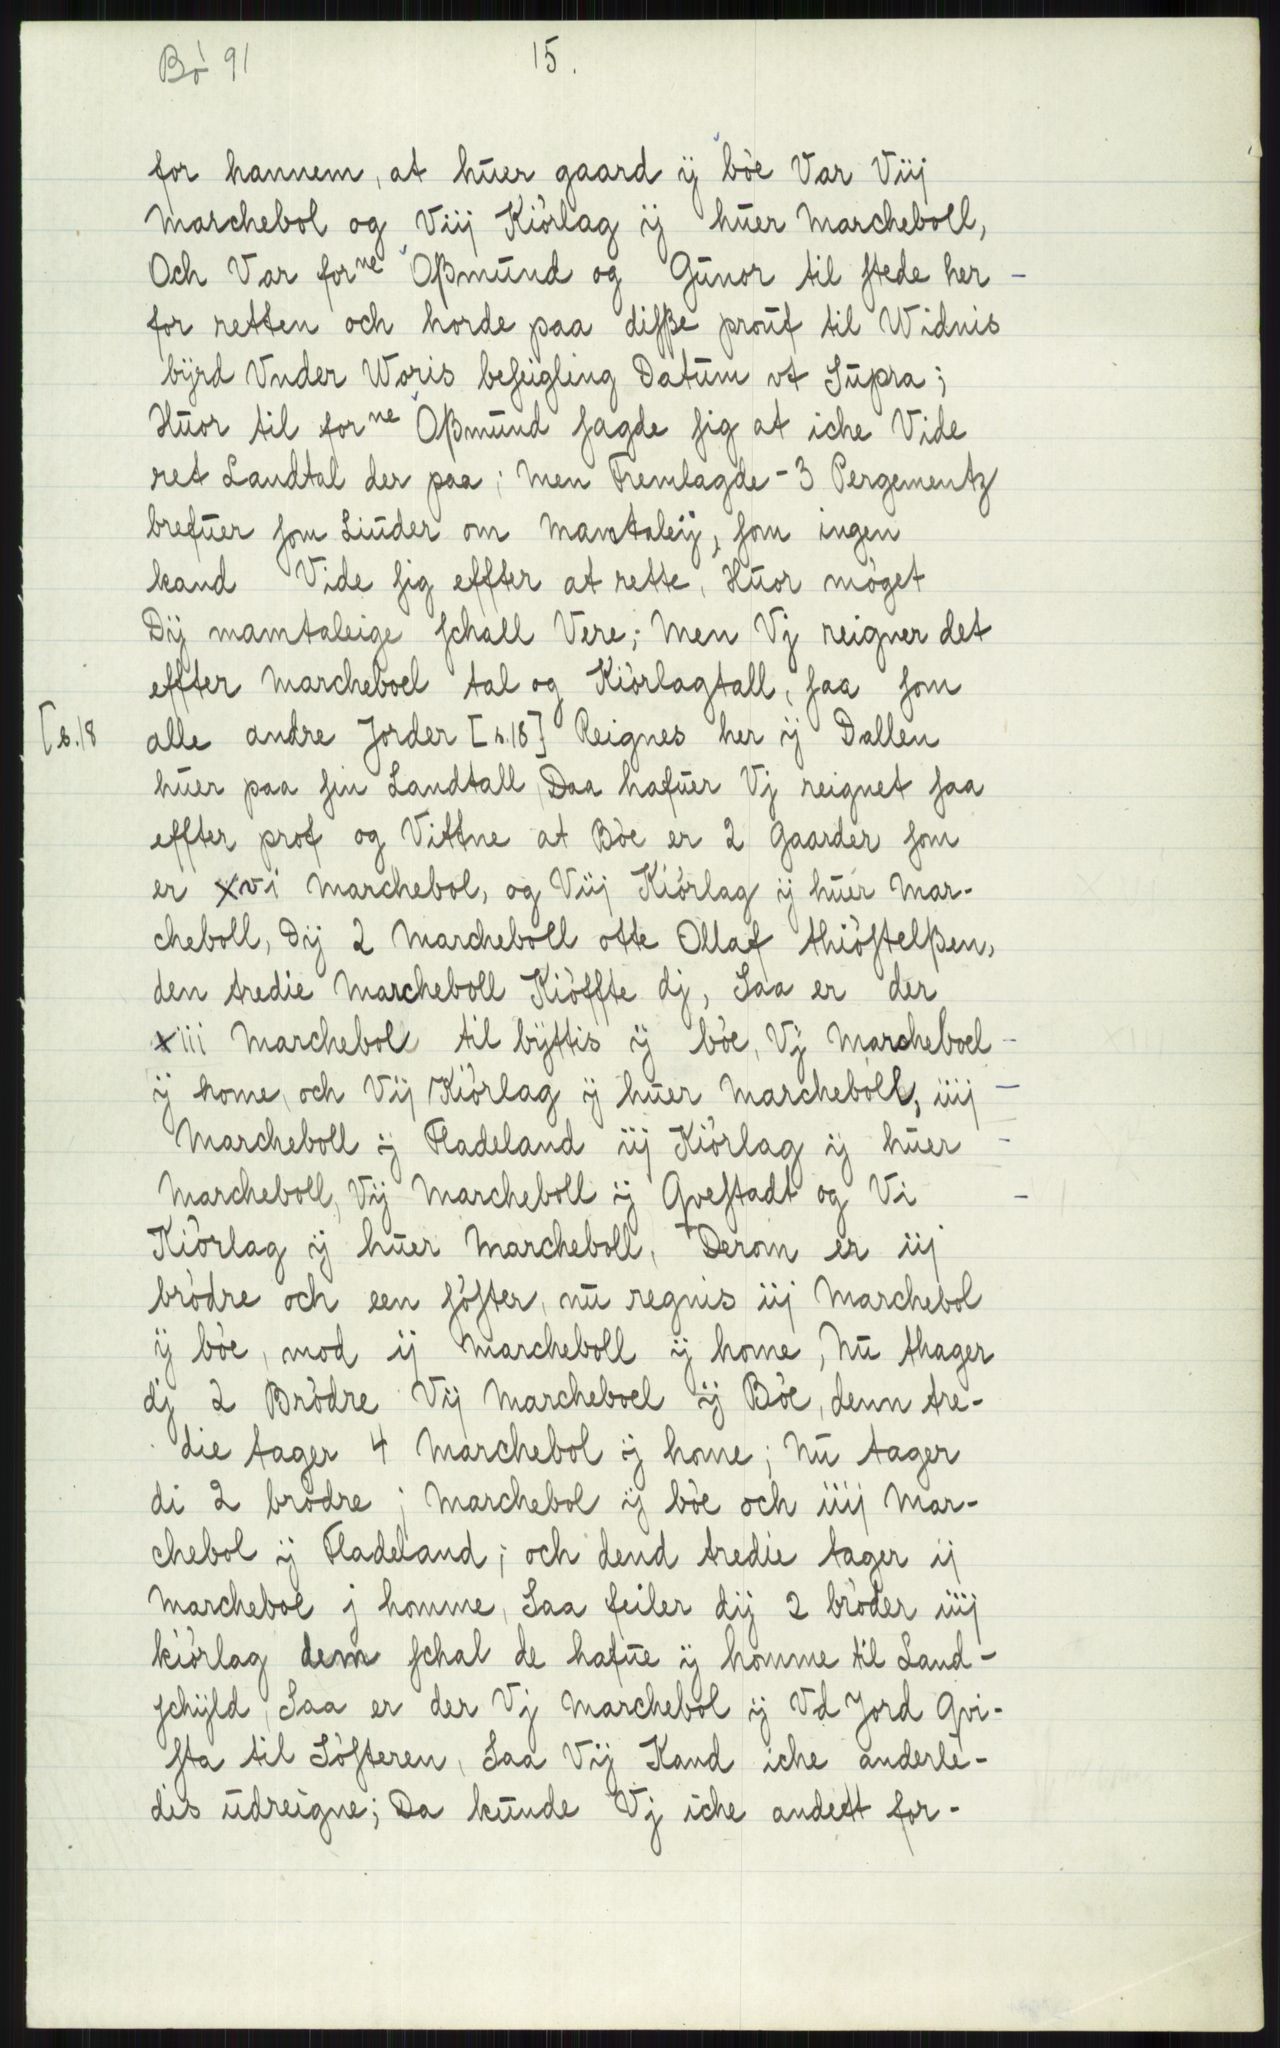 Bó 91
15.
for hannem, at huer gaard ÿ bòe Var Viij
Marchebol og Viij Kiòrlag ÿ huer Marcheboll,
Och Var forne Oßmund og Gunor til stede her –
for retten och horde paa disße prouf til Widnis
bÿrd Vnder Woris beseigling Datum vt Supra;
Huor til forne Oßmund sagde sig at iche Vide
ret Landtal der paa; Men Fremlagde – 3 Pergementz
brefuer som Liuder om Mamtaleÿ, som ingen
kand Vide sig effter at rette, Huor mòget
Dÿ mamtaleige schall Vere; Men Vj reigner det
effter Marcheboel tal og Kiòrlagtall, saa som
[s.18 alle andre Jorder [s.18] Reignes her ÿ Dallen
huer paa sin Landtall Daa hafuer Vj reignet saa
effter prof og Vittne at Bòe er 2 Gaarder som
er xvi Marchebol, og Viij Kiòrlag ÿ huer Mar-
cheboll, Dÿ 2 Marcheboll otte Ollaf thiòstelßen,
den tredie Marcheboll Kiòffte dj, Saa er der
xiii Marchebol til bÿttis ÿ bòe, Vÿ Marcheboel –
ÿ home, och Vÿ Kiòrlag ÿ huer Marcheboll, iiij –
Marcheboll ÿ Fladeland iij Kiòrlag ÿ huer –
Marcheboll, Vÿ Marcheboll ÿ Qvestadt og Vi –
Kiòrlag ÿ huer Marcheboll, Derom er iij
bròdre och een sòster, nu regnis iij Marchebol
ÿ bòe, mod ij Marcheboll ÿ home, Nu thager
dj 2 Bròdre Vÿ Marcheboel ÿ Bòe, denn tre-
die tager 4 Marchebol ÿ home; Nu tager
di 2 bròdre j Marchebol ÿ bòe och iiij Mar-
chebol ÿ Fladeland; och dend tredie tager ij
Marcheboe j homme, Saa feiler dÿ 2 bròder iiij
kiòrlag dem schal de hafue ÿ homme til Land-
schÿld, Saa er der Vj Marchebol ÿ Vd Jord Qvi-
sta til Sòsteren, Saa Vÿ Kand iche anderle-
dis udreigne; Da kunde Vj iche andett for-